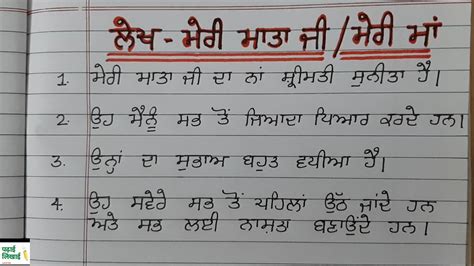 ਲੇਖ - ਮੇਰੀ ਮਾਤਾ ਜੀ / ਮੇਰੀ ਮਾਂ
1. ਮੇਰੀ ਮਾਤਾ ਜੀ ਦਾ ਨਾਂ ਸ਼੍ਰੀਮਤੀ ਸੁਨੀਤਾ ਹੈ।
2. ਉਹ ਮੈਨੂੰ ਸਭ ਤੋਂ ਜਿਆਦਾ ਪਿਆਰ ਕਰਦੇ ਹਨ।
3. ਉਨ੍ਹਾਂ ਦਾ ਸੁਭਾਅ ਬਹੁਤ ਵਧੀਆ ਹੈ।
4. ਉਹ ਸਵੇਰੇ ਸਭ ਤੋਂ ਪਹਿਲਾਂ ਉੱਠ ਜਾਂਦੇ ਹਨ
ਅਤੇ ਸਭ ਲਈ ਨਾਸਤਾ ਬਣਾਉਂਦੇ ਹਨ।
पढ़ाई
लिखाई